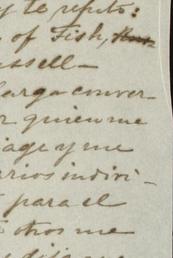 y te repito:
of Fish,
ussell –
larga conver-
r quien me
iage y me
arios indivi-
para el
otros me